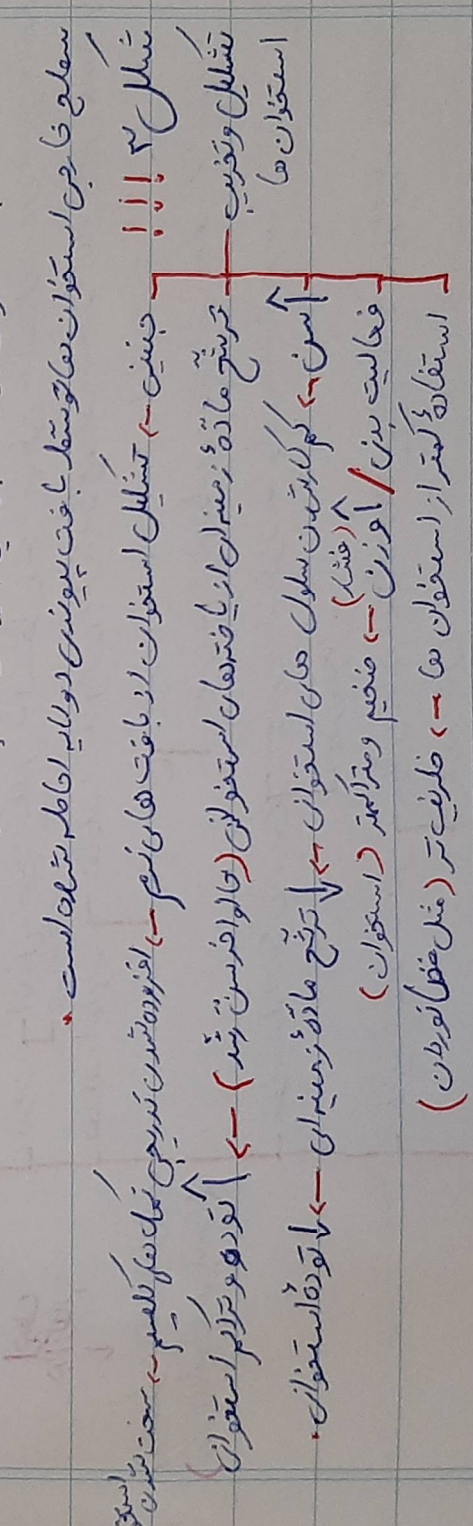 سطح خارجی استخوان ها توسط بافت پیوندی دولایه احاطه شده است.
شکل ۳ !!!
تشکیل و تخریب استخوان ها
جنین ← تشکیل استخوان از بافت های نرم ← افزوده شدن تدریجی نمک های کلسیم ← سخت شدن
ترشح مادهٔ زمینه ای از یاخته های استخوانی (حالا و آخر سن رشد) ← ↑ توده و تراکم استخوانی
↑ سن ← کم کار شدن سلول های استخوانی ← ↓ ترشح مادهٔ زمینه ای ← ↓ تودهٔ استخوانی.
فعالیت بدنی / ↑ وزن (فشار) ← ضخیم و متراکمتر (استخوان)
استفادهٔ کمتر از استخوان ها ← ظریف تر (مثل فضانوردان)